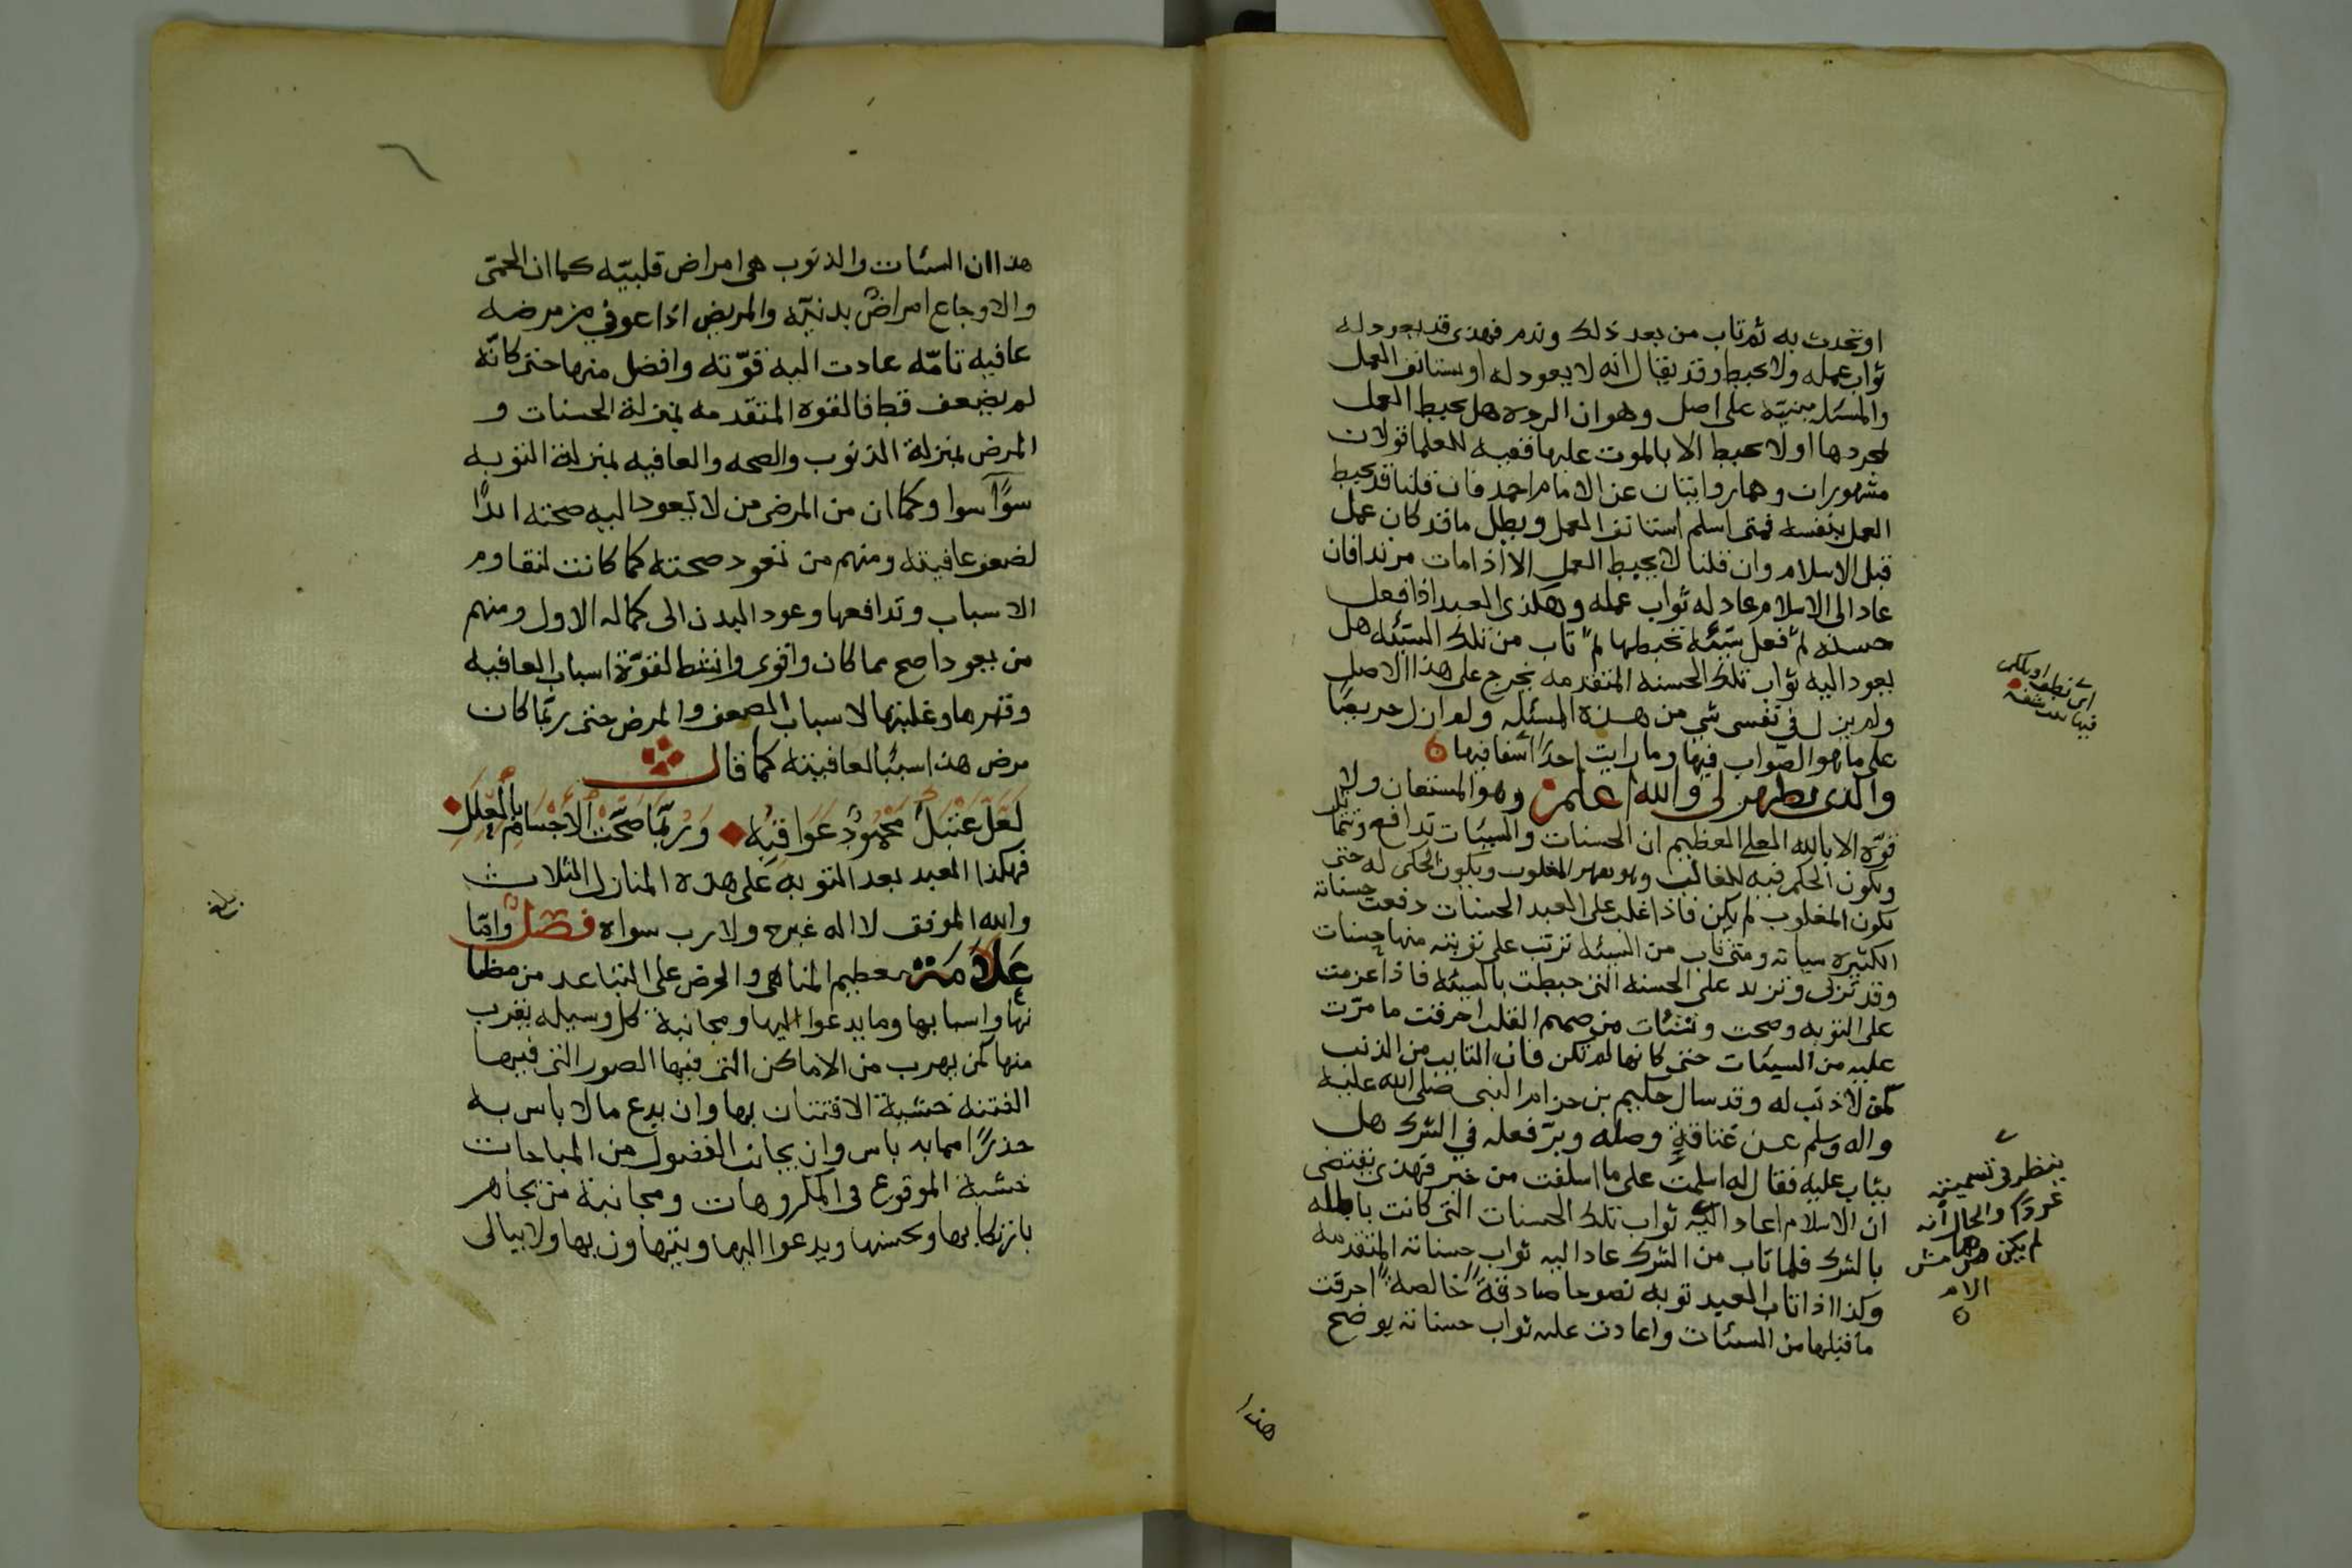 او تحدث به ثم تاب من بعد ذلك وندم فهذى قد يعود له
ثواب عمله ولا يحبط وقد يقال انه لا يعود له او يستانف العمل
والمسئله مبنيّه على اصل وهو ان الرده هل يحبط العمل
بمجردها او لا يحبط الا بالموت عليها ففيه للعلما قولان
مشهوران وهما روايتان عن الامام احمد فان قلنا قد يحبط
العمل بنفسه فمتى اسلم استانف العمل وبطل ما قد كان عمل
قبل الاسلام وان قلنا لا يحبط العمل الا اذا مات مرتدا فان
عاد الى الاسلام عاد له ثواب عمله وهكذى العبد اذا فعل
حسنه ثم فعل سيّئه تحبطها ثم تاب من تلك السيّئه هل
يعود اليه ثواب تلك الحسنه المتقدمه يخرج على هذا الاصل
ولم يزل في نفسى شي من هذه المسئله ولم ازل حريصًا
على ما هو الصّواب فيها وما رايت احدًا اشفا فيها
والذى يظهر لى والله اعلم وهو المستعان ولا
قوّه الا بالله العلي العظيم ان الحسنات والسيئات تدافع وتتقابل
ويكون الحكم فيه للغالب وهو يقهر المغلوب ويكون الحكم له حتى
يكون المغلوب لم يكن فاذا غلب على العبد الحسنات دفعت حسناته
الكثيره سياته ومتى تاب من السيئه ترتب على توبته منها حسنات
وقد تربى وتزيد على الحسنه التى حبطت بالسيئه فاذا عزمت
على التوبه وصحت ونشئات من صميم القلب احرقت ما مرّت
عليه من السيئات حتى كانها لم تكن فان التايب من الذنب
كمن لا ذنب له وقد سال حكيم بن حزام النبى صلى الله عليه
واله وسلم عن عتاقةٍ وصله وبرّ فعله في الشرك هل
يثاب عليه فقال له اسلمت على ما اسلفت من خير فهذى يقتضى
ان الاسلام اعاد اليه ثواب تلك الحسنات التى كانت باطله
بالشرك فلما تاب من الشرك عاد اليه ثواب حسناته المتقدمه
وكذا اذا تاب العبد توبه نصوحا صادقةً خالصةً احرقت
ما قبلها من السيئات واعادت عليه ثواب حسناته يوضح
فيها
ينظر في تسميته
والحال انه
لم يكن
هذا
هذا ان السئات والذنوب هى امراض قلبيّه كما ان الحمّى
والاوجاع امراضٌ بدنيّه والمريض اذا عوفي من مرضه
عافيه تامّه عادت اليه قوّته وافضل منها حتى كانّه
لم يضعف قط فالقوه المتقدمه بمنزلة الحسنات و
المرض بمنزلة الذنوب والصحه والعافيه بمنزلة التوبه
سوًآ سوا وكما ان من المرضى من لا يعود اليه صحته ابدًا
لضعف عافيته ومنهم من تعود صحته كما كانت لتقاوم
الاسباب وتدافعها وعود البدن الى كماله الاول ومنهم
من يعود اصح مما كان واقوى وانشط لقوّة اسباب العافيه
وقهرها وغلبتها لاسباب الضعف والمرض حتى ربّما كان
مرض هذا سببًا لعافيته كما قال
لَعَلَّ عَتْبَكَ مَحْمُودٌ عَوَاقِبُه وَرُبَّمَا صَحَّتِ الاَجْسَامُ بالْعِلَلِ
فهكذا العبد بعد التوبه على هذه المنازل الثلاث
والله الموفق لا اله غيره ولا رب سواه فصل وامّا
عَلاَمَة تعظيم المناهى والحرص على التباعد من مظا
نها واسبابها وما يدعوا اليها ومجانبة كل وسيله تقرب
منها كمن يهرب من الاماكن التى فيها الصور التى فيها
الفتنه خشية الافتتان بها وان يدع ما لا باس به
حذرًا مما به باس وان يجانب الفضول من المباحات
خشية الوقوع في المكروهات ومجانبة من يجاهر
بارتكابها ويحسنها ويدعوا اليها ويتهاون بها ولا يبالى